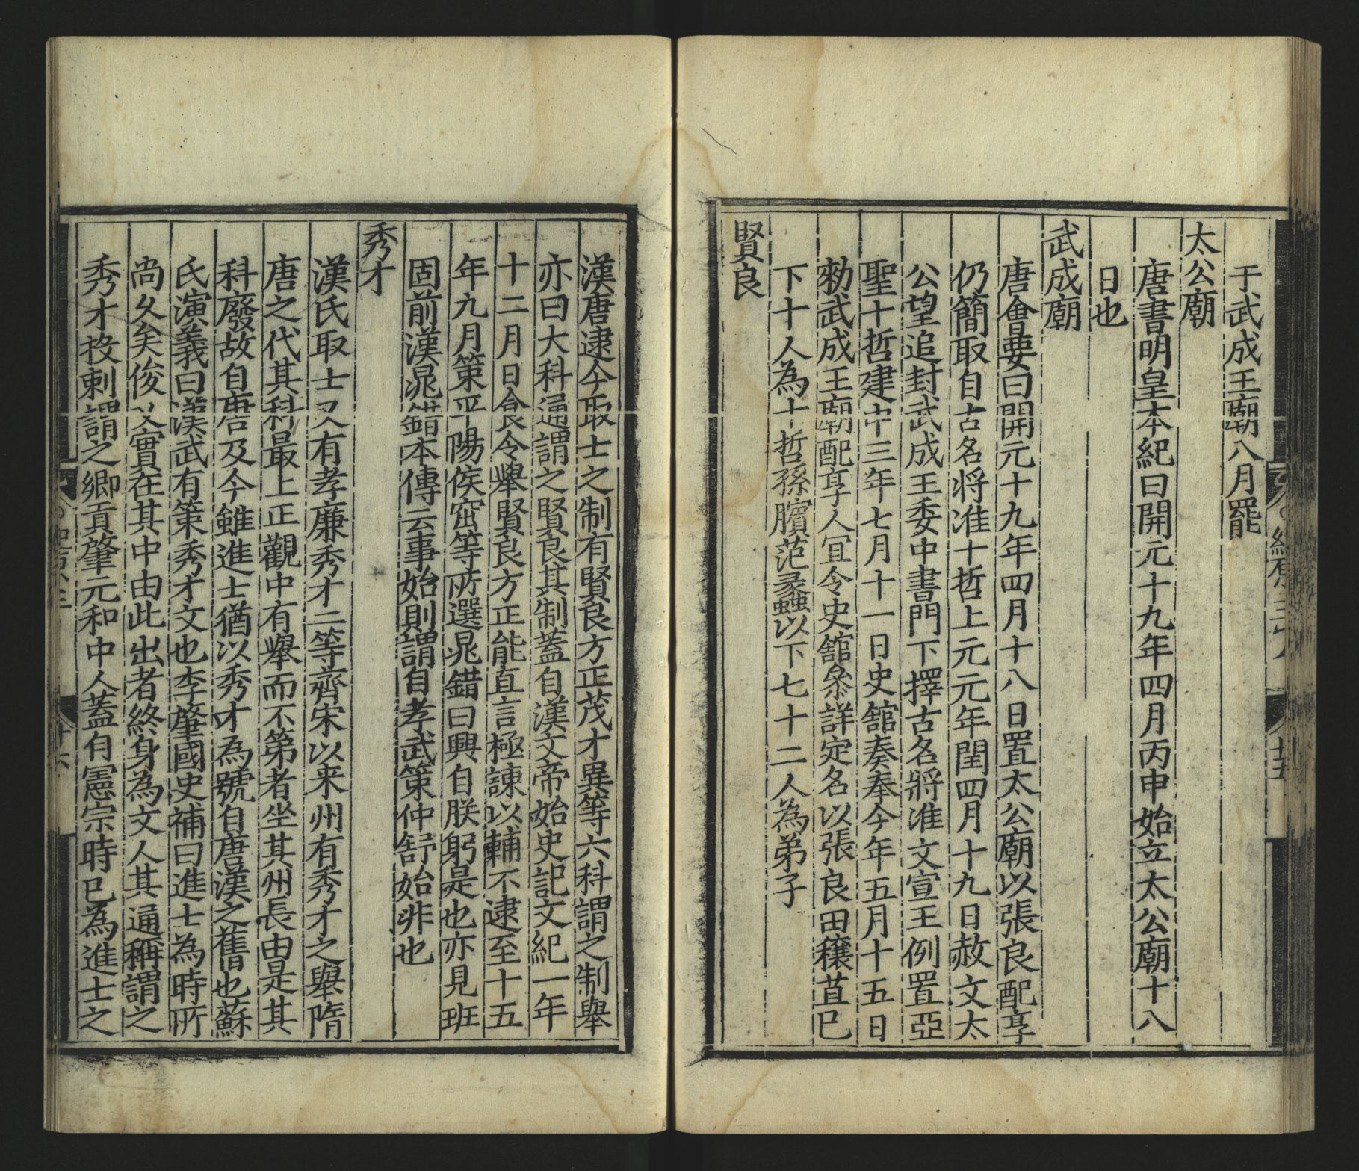 于武成王廟八月罷
太公廟
唐書明皇本紀曰開元十九年四月丙申始立太公廟十八
日也
武成廟
唐會要曰開元十九年四月十八日置太公廟以張良配享
仍簡取自古名將准十哲上元元年閏四月十九日赦文太
公望追封武成王委中書門下擇古名將准文宣王例置亞
聖十哲建中三年七月十一日史館奏奉今年五月十五日
勑武成王廟配享人宜令史館叅詳定名以張良田穰苴已
下十人為十哲孫臏范蠡以下七十二人為弟子
賢良
漢唐逮今取士之制有賢良方正茂才異等六科謂之制舉
亦曰大科通謂之賢良其制蓋自漢文帝始史記文紀一年
十二月日食令舉賢良方正能直言極諫以輔不逮至十五
年九月策平陽侯窋等所選晁錯曰興自朕躬是也亦見班
固前漢晁錯本傳云事始則謂自孝武策仲舒始非也
秀才
漢氏取士又有孝廉秀才二等齊宋以来州有秀才之舉隋
唐之代其科最上正觀中有舉而不第者坐其州長由是其
科廢故自唐及今雖進士猶以秀才為號自唐漢之舊也蘇
氏演義曰漢武有策秀才文也李肇國史補曰進士為時所
尚久矣俊乂實在其中由此出者終身為文人其通稱謂之
秀才投刺謂之鄉貢肇元和中人蓋自憲宗時已為進士之